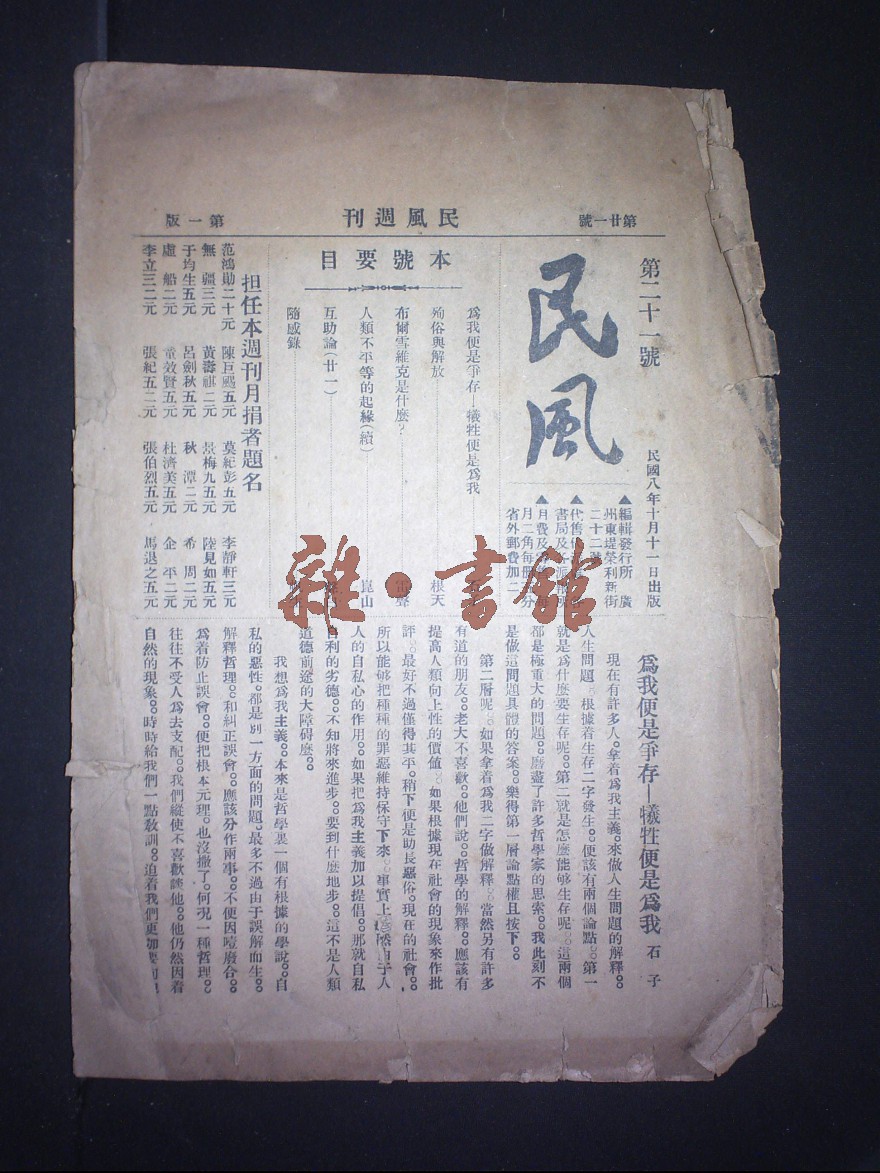 第廿一號
民風週刊
第一版
第二十一號
民國八年十月十一日出版
民風
▲編輯發行所 廣
州東堤榮利新街
二十二
▲代售
書局及
▲月費及
月二角每册 分
省外郵費加二
本號要目
爲我便是爭存—犧牲便是爲我
殉俗與解放 根天
布爾雪維克是什麽?
人類不平等的起緣(續) 崑山
互助論(廿一)
隨感錄
担任本週刊月捐者題名
范鴻勛二十元 陳巨颺五元 莫紀彭五元 李靜軒三元
無疆三元 黃壽祺二元 景梅九五元 陸見如五元
于均生五元 呂劍秋五元 秋潭二元 希周二元
虛船二元 童效賢五元 杜濟美五元 企平二元
李立三二元 張紀五二元 張伯烈五元 馬退之五元
爲我便是爭存—犧牲便是爲我 石子
現在有許多人。拿着爲我主義。來做人生問題的解釋。。
人生問題。根據着生存二字發生。便該有兩個論點。。第一
就是爲什麽要生存呢。。第二就是怎麽能够生存呢。。這兩個
都是極重大的問題。。磨盡了許多哲學家的思索。。我此刻不
是做這問題具體的答案。。樂得第一層論點權且按下。。
第二層呢。。如果拿着爲我二字做解釋。。當然另有許多
有道的朋友。。老大不喜歡。。他們說。。哲學的解釋。。應該有
提高人類向上性的價値。。如果根據現在社會的現象來作批
評。。最好不過僅得其平。稍下便是助長惡俗。現在的社會。。
所以能够把種種的罪惡維持保守下來。。事實上 然由于人
人的自私心的作用。。如果把爲我主義加以提倡。。那就自私
自利的劣德。。不知將來進步。。要到什麽地步。。這不是人類
道德前途的大障碍麽。。
我想爲我主義。。本來是哲學裏一個有根據的學說。。自
私的惡性。都是別一方面的問題。最多不過由于誤解而生。。
解釋哲理。。和糾正誤會。。應該分作兩事。。不便因噎廢合。。
爲着防止誤會。。便把根本元理。也沒撤了。何况一種哲理。。
往往不受人爲去支配。。我們縱使不喜歡談他。。他仍然因着
自然的現象。。時時給我們一點敎訓。。迫着我們更加要
雜·書館